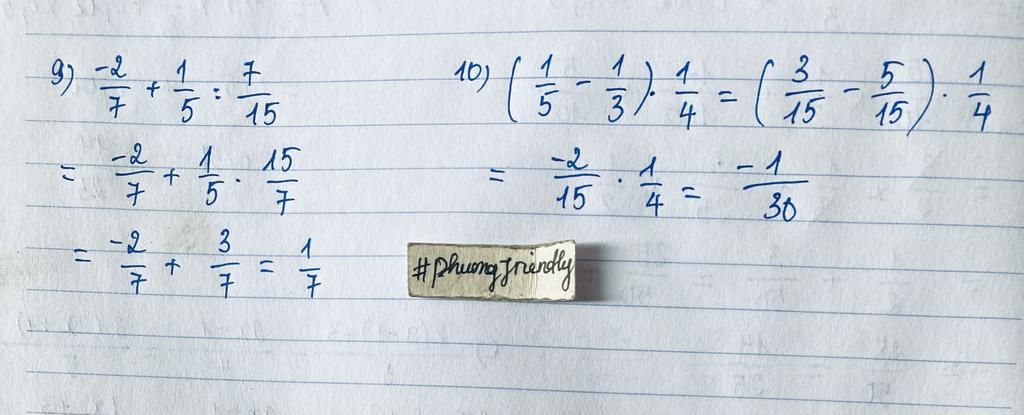 9) -2/7 + 1/5 : 7/15
= -2/7 + 1/5 . 15/7
= -2/7 + 3/7 = 1/7
10) (1/5 - 1/3) . 1/4 = (3/15 - 5/15) . 1/4
= -2/15 . 1/4 = -1/30
#phuongfriendly